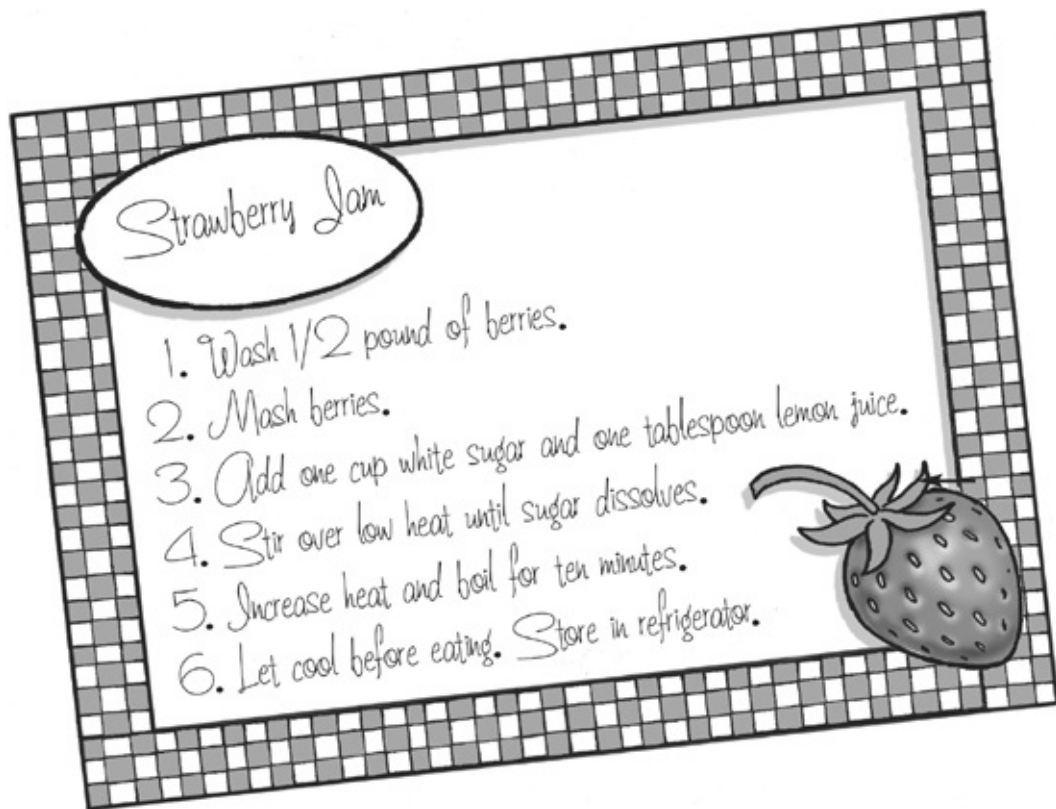 Strawberry Jam
1. Wash 1/2 pound of berries.
2. Mash berries.
3. Add one cup white sugar and one tablespoon lemon juice.
4. Stir over low heat until sugar dissolves.
5. Increase heat and boil for ten minutes.
6. Let cool before eating. Store in refrigerator.